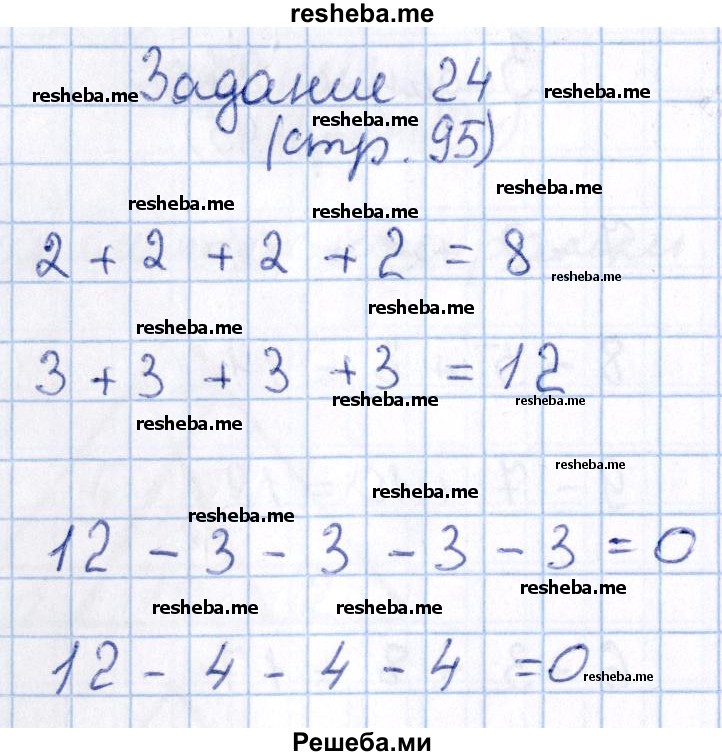 resheba.me
resheba.me Задание 24 resheba.me
resheba.me
(стр. 95)
resheba.me
resheba.me resheba.me
2 + 2 + 2 + 2 = 8
resheba.me
resheba.me
resheba.me
3 + 3 + 3 + 3 = 12
resheba.me resheba.me
resheba.me
resheba.me
resheba.me
resheba.me
12 - 3 - 3 - 3 - 3 = 0
resheba.me
resheba.me resheba.me
12 - 4 - 4 - 4 = 0
resheba.me
Решеба.ми